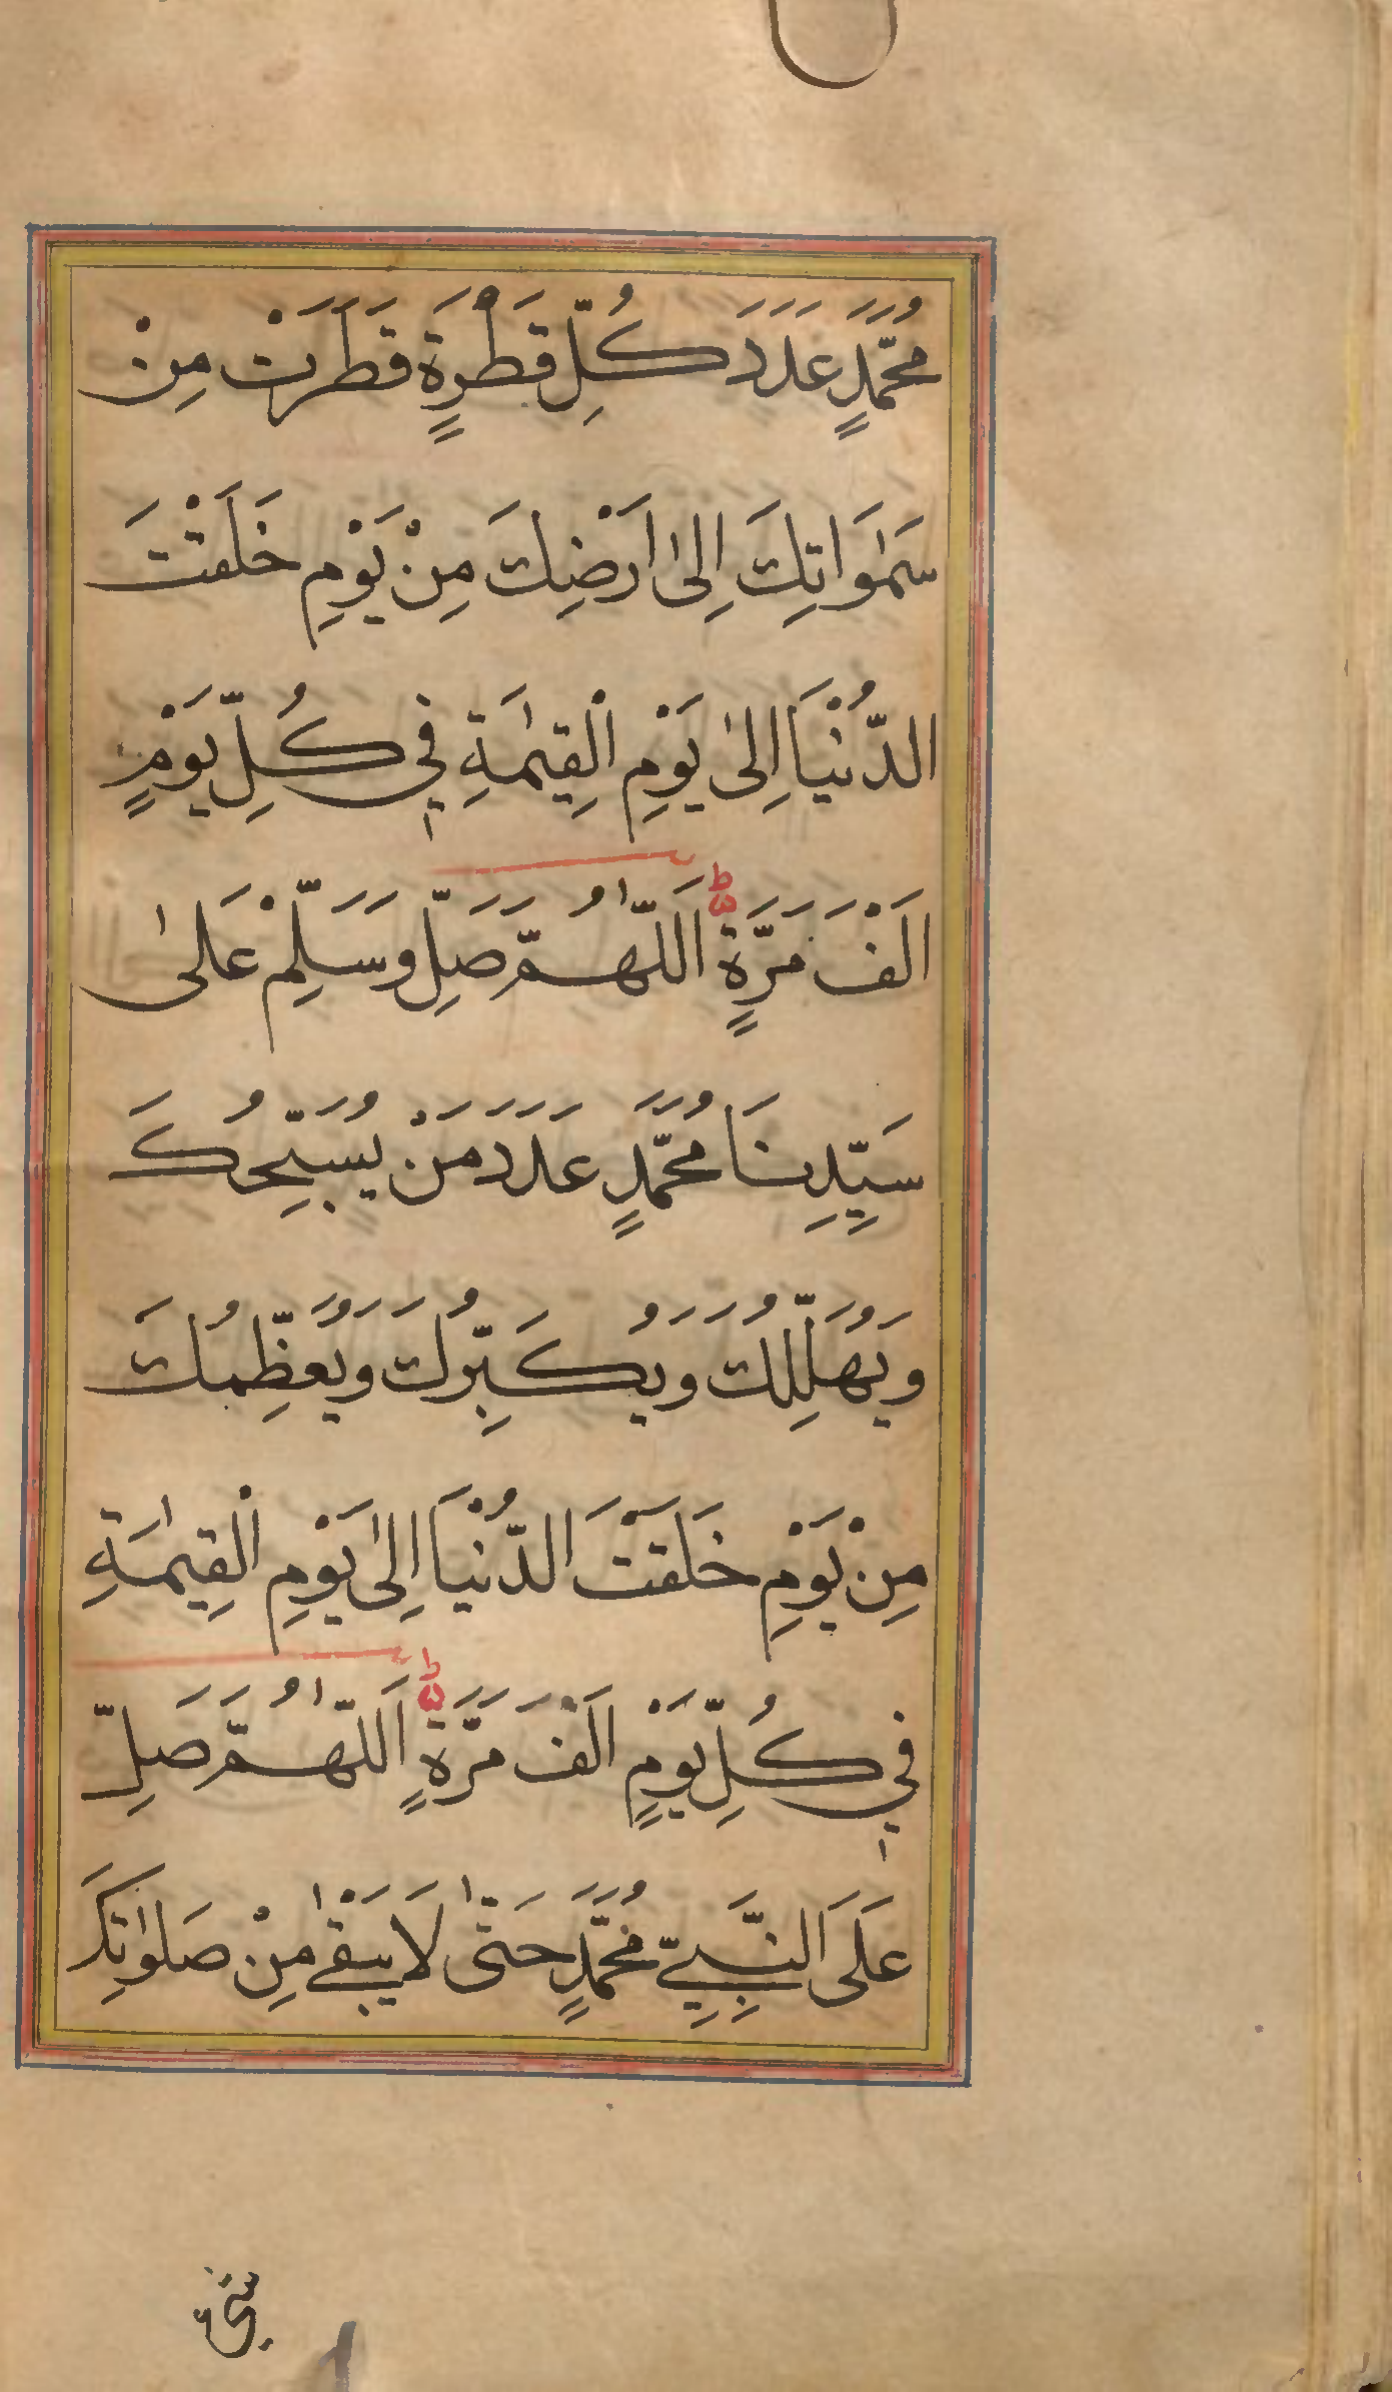 مُحَمَّدٍ عَدَدَ كُلِّ قَطْرَةٍ قَطَرَتْ مِنْ
سَمٰوَاتِكَ اِلىٰ اَرْضِكَ مِنْ يَوْمِ خَلَقْتَ
الدُّنْيَا اِلىٰ يَوْمِ الْقِيٰمَةِ فِي كُلِّ يَوْمٍ
اَلْفَ مَرَّةٍ ط اَللّٰهُمَّ صَلِّ وَسَلِّمْ عَلىٰ
سَيِّدِنَا مُحَمَّدٍ عَدَدَ مَنْ يُسَبِّحُكَ
وَيُهَلِّلُكَ وَيُكَبِّرُكَ وَيُعَظِّمُكَ
مِنْ يَوْمِ خَلَقْتَ الدُّنْيَا اِلىٰ يَوْمِ الْقِيٰمَةِ
فِي كُلِّ يَوْمٍ اَلْفَ مَرَّةٍ ط اَللّٰهُمَّ صَلِّ
عَلَى النَّبِيِّ مُحَمَّدٍ حَتّٰى لَا يَبْقٰى مِنْ صَلَوٰتِكَ